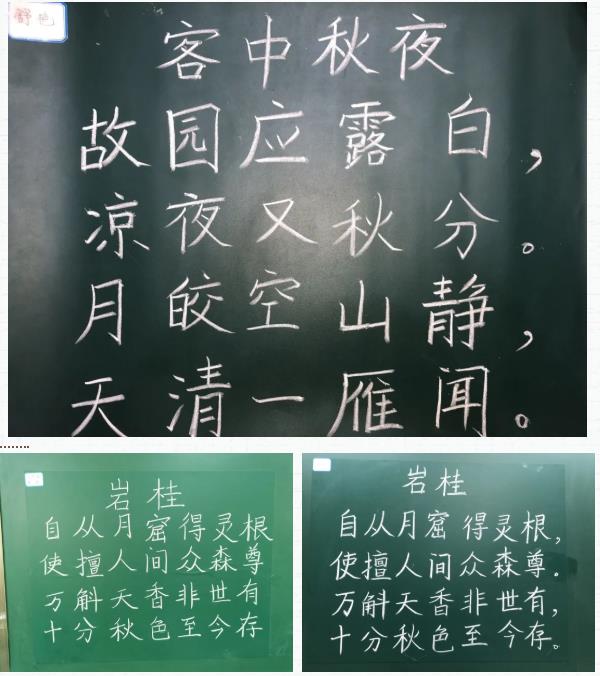 客中秋夜
故园应露白，
凉夜又秋分。
月皎空山静，
天清一雁闻。
岩桂
自从月窟得灵根
使擅人间众森尊
万斛天香非世有
十分秋色至今存
岩桂
自从月窟得灵根，
使擅人间众森尊。
万斛天香非世有，
十分秋色至今存。